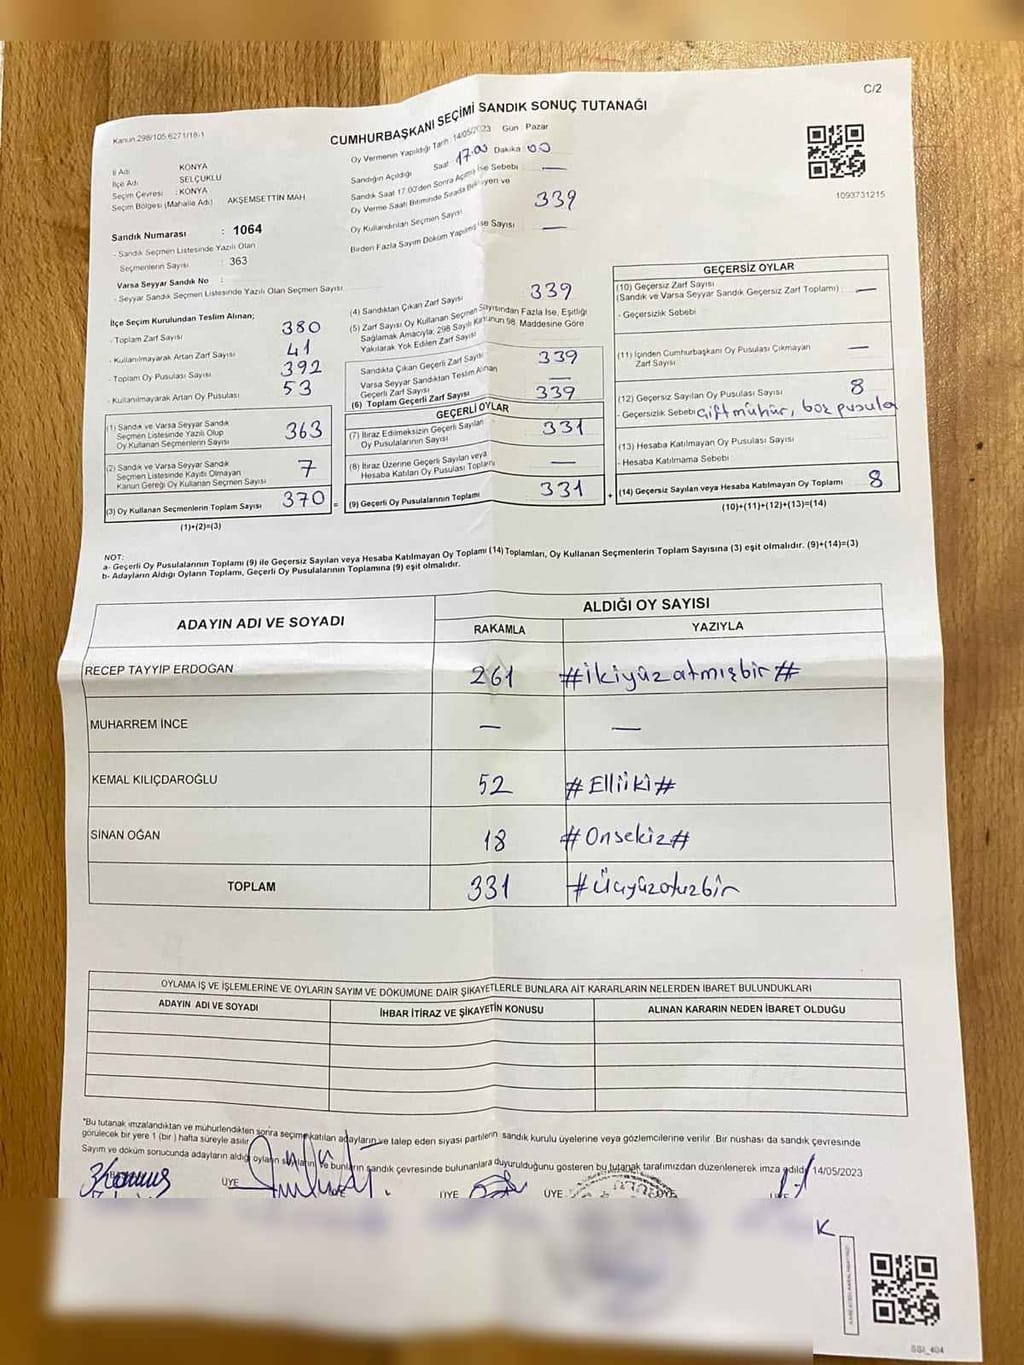 C/2
Kanun 298/105 6271/18-1
CUMHURBAŞKANI SEÇİMİ SANDIK SONUÇ TUTANAĞI
1093731215
İl Adı KONYA
İlçe Adı SELÇUKLU
Seçim Çevresi : KONYA
Seçim Bölgesi (Mahalle Adı) AKŞEMSETTİN MAH
Sandık Numarası : 1064
- Sandık Seçmen Listesinde Yazılı Olan
Seçmenlerin Sayısı : 363
Varsa Seyyar Sandık No :
- Seyyar Sandık Seçmen Listesinde Yazılı Olan Seçmen Sayısı
Oy Vermenin Yapıldığı Tarih 14/05/2023 Gün Pazar
Sandığın Açıldığı Saat 17.00 Dakika 00
Sandık Saat 17:00'den Sonra Açılmış ise Sebebi —
Oy Verme Saati Bitiminde Sırada Bekleyen ve
Oy Kullandırılan Seçmen Sayısı 339
Birden Fazla Sayım Döküm Yapılmış ise Sayısı —
İlçe Seçim Kurulundan Teslim Alınan;
- Toplam Zarf Sayısı 380
- Kullanılmayarak Artan Zarf Sayısı 41
- Toplam Oy Pusulası Sayısı 392
- Kullanılmayarak Artan Oy Pusulası 53
(1) Sandık ve Varsa Seyyar Sandık
Seçmen Listesinde Yazılı Olup
Oy Kullanan Seçmenlerin Sayısı 363
(2) Sandık ve Varsa Seyyar Sandık
Seçmen Listesinde Kayıtlı Olmayan
Kanun Gereği Oy Kullanan Seçmen Sayısı 7
(3) Oy Kullanan Seçmenlerin Toplam Sayısı 370 =
(1)+(2)=(3)
(4) Sandıktan Çıkan Zarf Sayısı 339
(5) Zarf Sayısı Oy Kullanan Seçmen Sayısından Fazla İse, Eşitliği
Sağlamak Amacıyla; 298 Sayılı Kanunun 98 Maddesine Göre
Yakılarak Yok Edilen Zarf Sayısı
Sandıkta Çıkan Geçerli Zarf Sayısı 339
Varsa Seyyar Sandıktan Teslim Alınan
Geçerli Zarf Sayısı —
(6) Toplam Geçerli Zarf Sayısı 339
GEÇERLİ OYLAR
(7) İtiraz Edilmeksizin Geçerli Sayılan
Oy Pusulalarının Sayısı 331
(8) İtiraz Üzerine Geçerli Sayılan veya
Hesaba Katılan Oy Pusulaları Toplamı —
(9) Geçerli Oy Pusulalarının Toplamı 331 +
GEÇERSİZ OYLAR
(10) Geçersiz Zarf Sayısı
(Sandık ve Varsa Seyyar Sandık Geçersiz Zarf Toplamı) —
- Geçersizlik Sebebi
(11) İçinden Cumhurbaşkanı Oy Pusulası Çıkmayan
Zarf Sayısı —
(12) Geçersiz Sayılan Oy Pusulası Sayısı 8
- Geçersizlik Sebebi Çift mühür, boş pusula
(13) Hesaba Katılmayan Oy Pusulası Sayısı
- Hesaba Katılmama Sebebi
(14) Geçersiz Sayılan veya Hesaba Katılmayan Oy Toplamı 8
(10)+(11)+(12)+(13)=(14)
NOT:
a- Geçerli Oy Pusulalarının Toplamı (9) ile Geçersiz Sayılan veya Hesaba Katılmayan Oy Toplamı (14) Toplamları, Oy Kullanan Seçmenlerin Toplam Sayısına (3) eşit olmalıdır. (9)+(14)=(3)
b- Adayların Aldığı Oyların Toplamı, Geçerli Oy Pusulalarının Toplamına (9) eşit olmalıdır.
ADAYIN ADI VE SOYADI ALDIĞI OY SAYISI
RAKAMLA YAZIYLA
RECEP TAYYİP ERDOĞAN 261 #İkiyüzatmışbir#
MUHARREM İNCE — —
KEMAL KILIÇDAROĞLU 52 #Elliiki#
SİNAN OĞAN 18 #Onsekiz#
TOPLAM 331 #Üçyüzotuzbir
OYLAMA İŞ VE İŞLEMLERİNE VE OYLARIN SAYIM VE DÖKÜMÜNE DAİR ŞİKAYETLERLE BUNLARA AİT KARARLARIN NELERDEN İBARET BULUNDUKLARI
ADAYIN ADI VE SOYADI İHBAR İTİRAZ VE ŞİKAYETİN KONUSU ALINAN KARARIN NEDEN İBARET OLDUĞU
*Bu tutanak imzalandıktan ve mühürlendikten sonra seçime katılan adayların ve talep eden siyasi partilerin sandık kurulu üyelerine veya gözlemcilerine verilir. Bir nüshası da sandık çevresinde
görülecek bir yere 1 (bir) hafta süreyle asılır
Sayım ve döküm sonucunda adayların aldığı oyların ve bunların sandık çevresinde bulunanlara duyurulduğunu gösteren bu tutanak tarafımızdan düzenlenerek imza edildi 14/05/2023
ÜYE ÜYE ÜYE ÜYE ÜYE
K
SSI_404